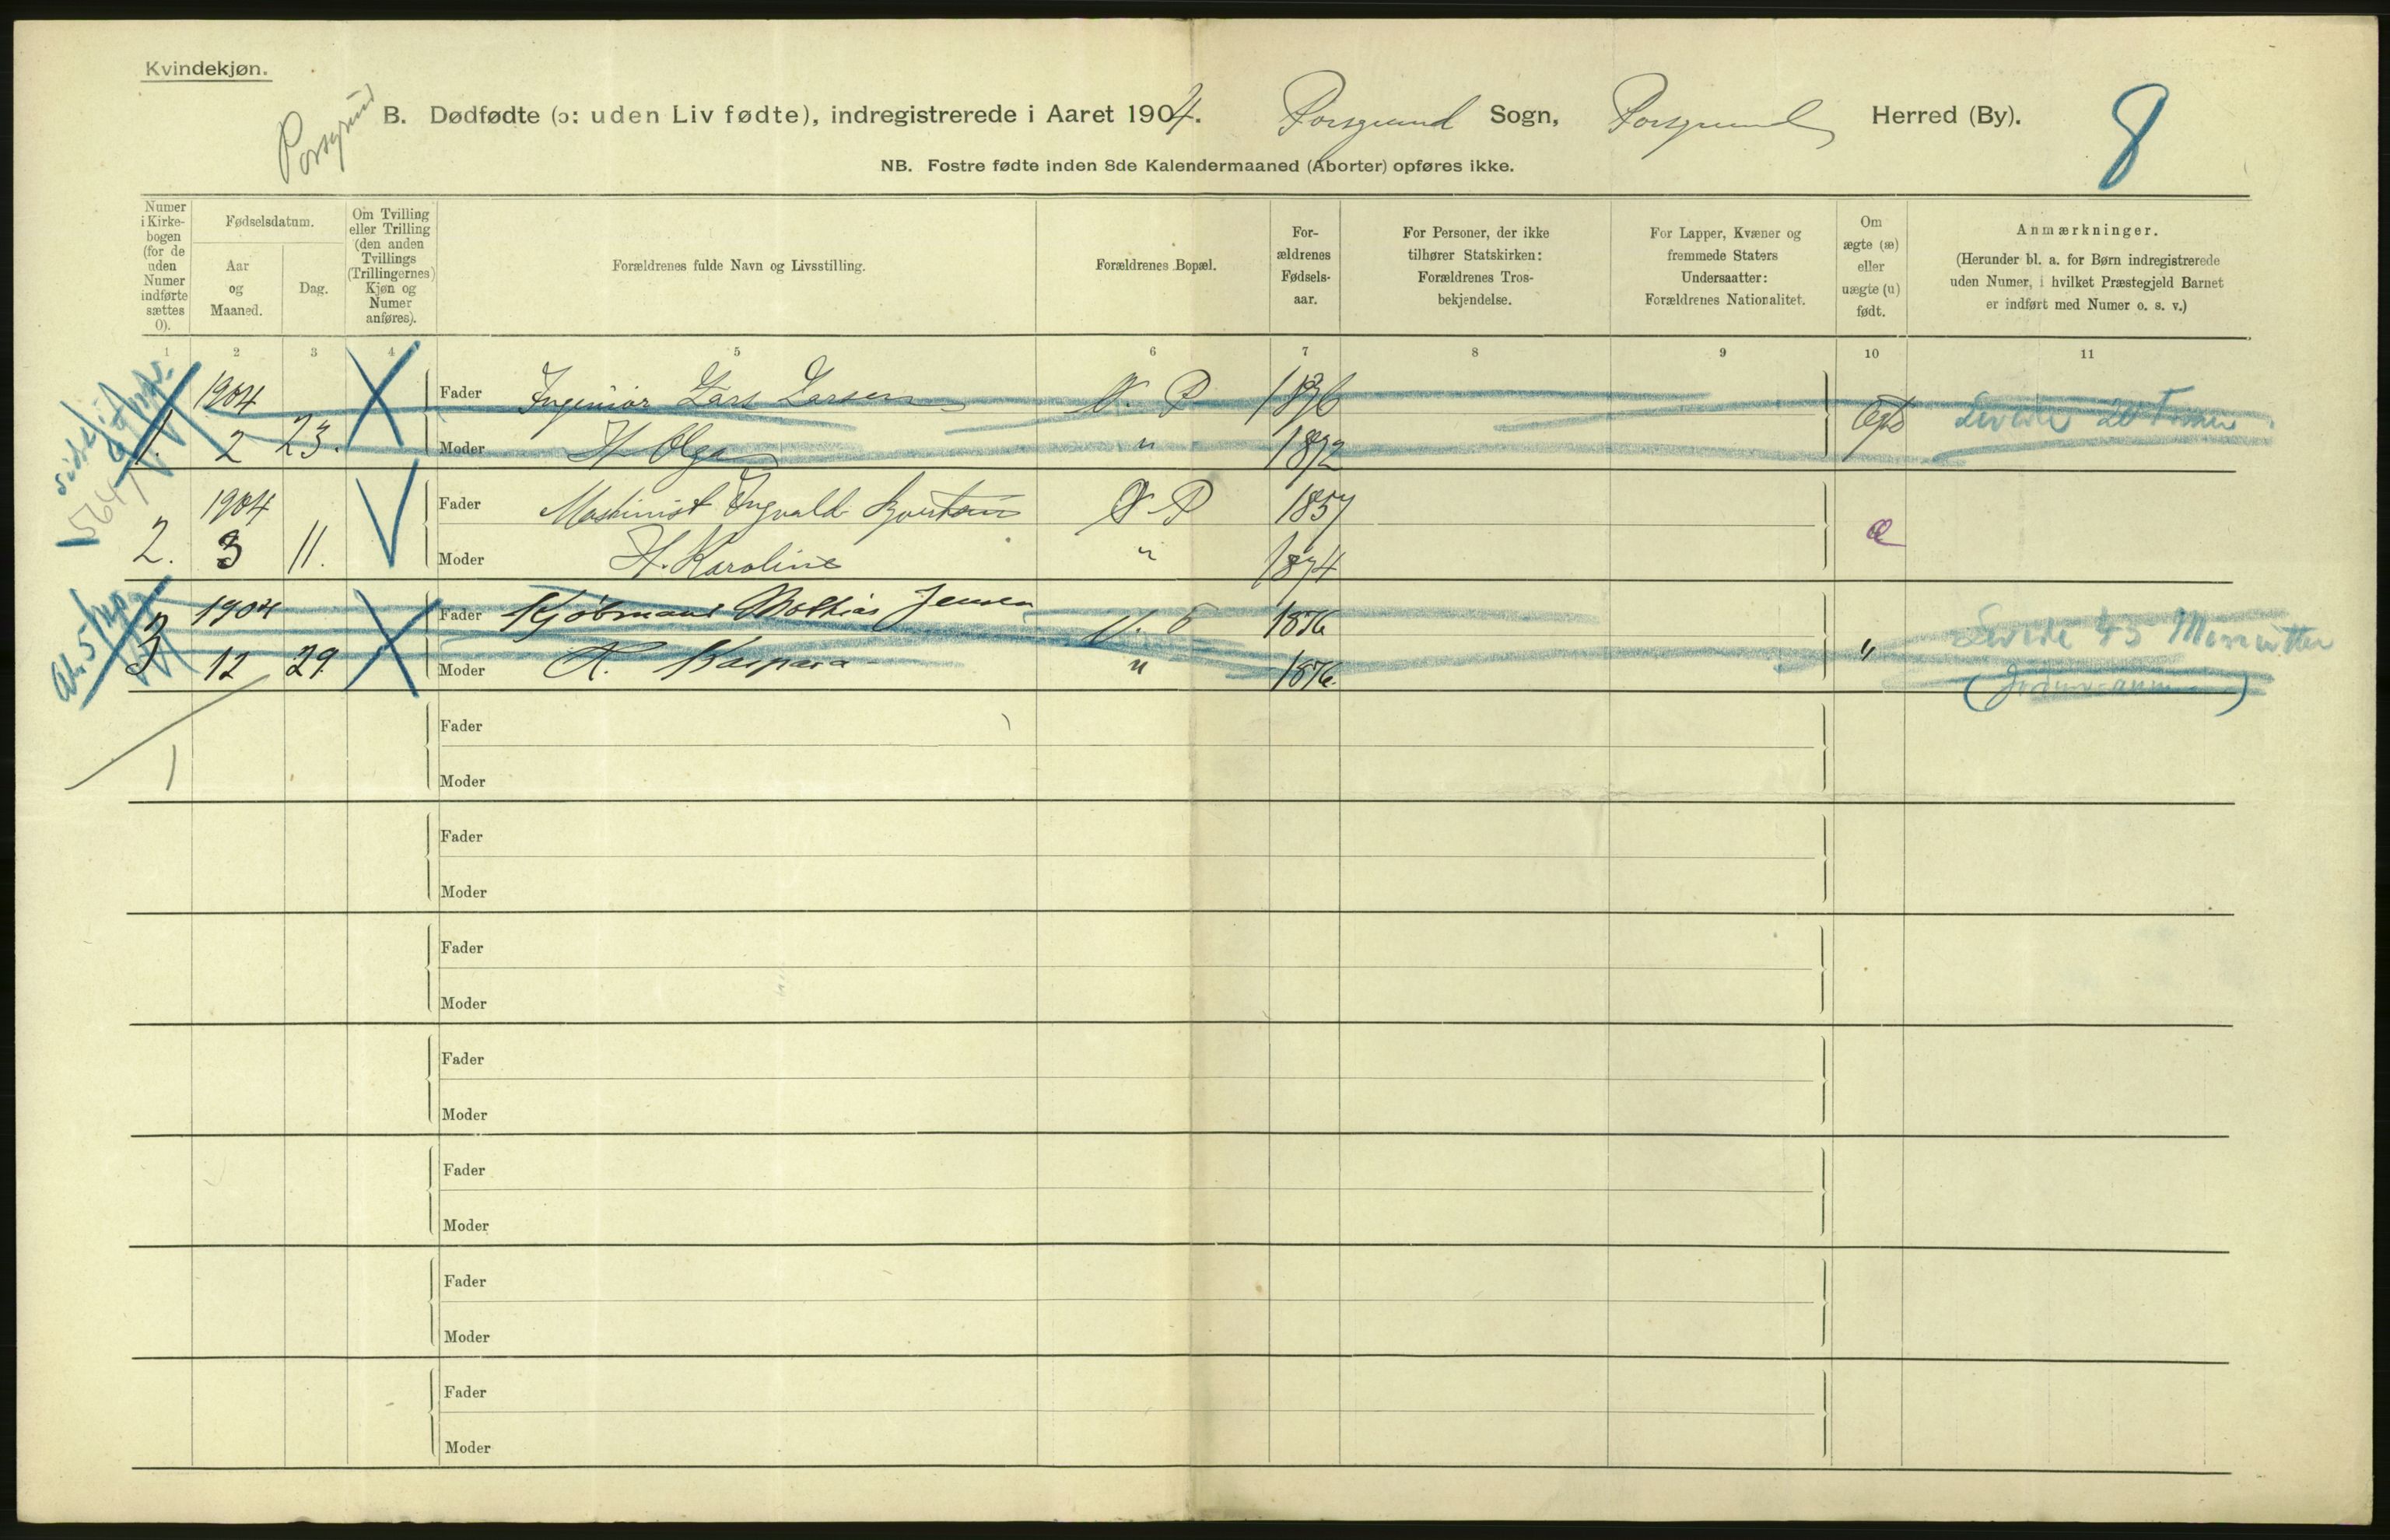 Kvindekjøn.
Porsgrund
B. Dødfødte (ɔ: uden Liv fødte), indregistrerede i Aaret 1904. Porsgrund Sogn, Porsgrund Herred (By).
8
NB. Fostre fødte inden 8de Kalendermaaned (Aborter) opføres ikke.
Numer i Kirke-
bogen
(for de
uden
Numer
indførte
sættes
0).
Fødselsdatum.
Aar
og
Maaned.
Dag.
Om Tvilling
eller Trilling
(den anden
Tvillings
(Trillingernes)
Kjøn og
Numer
anføres).
Forældrenes fulde Navn og Livsstilling.
Forældrenes Bopæl.
For-
ældrenes
Fødsels-
aar.
For Personer, der ikke
tilhører Statskirken:
Forældrenes Tros-
bekjendelse.
For Lapper, Kvæner og
fremmede Staters
Undersaatter:
Forældrenes Nationalitet.
Om
ægte (æ)
eller
uægte (u)
født.
Anmærkninger.
(Herunder bl. a. for Børn indregistrerede
uden Numer, i hvilket Præstegjeld Barnet
er indført med Numer o. s. v.)
1 2 3 4 5 6 7 8 9 10 11
1904 Fader Ingeniør Lars Larsen V. P 1876
1. 2 23. Moder H. Olga " 1872
Ægte Levede 20 Timer
1904 Fader Maskinist Ingvald V. P 1857
2. 3 11. Moder H. Karoline " 1874
æ
1904 Fader Kjøbmand Mathias Jensen V. 1876
3 12 29. Moder H. Kaspara " 1876.
" Levede 45 Minutter
Fader
Moder
Fader
Moder
Fader
Moder
Fader
Moder
Fader
Moder
Fader
Moder
Fader
Moder